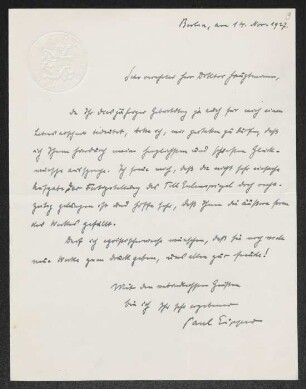 Berlin, am 14. Nov. 1927.
Sehr verehrter Herr Doktor Hauptmann,
da Ihr diesjähriger Geburtstag ja auch für mich einen
bedeutet, bitte ich, mir gestatten zu dürfen, daß
ich Ihnen hierdurch meine herzlichsten und schönsten Glück-
wünsche ausspreche. Ich freue mich, daß die nicht sehr einfache
Aufgabe der Fertigstellung des Till Eulenspiegel doch recht-
zeitig gelungen ist und hoffe sehr, daß Ihnen die äußere Form
des Werkes gefällt.
Darf ich egoistischerweise wünschen, daß Sie noch viele
neue Werke zum Druck geben, uns allen zur Freude!
Mit den verbindlichsten Grüßen
bin ich Ihr sehr ergebener
Paul